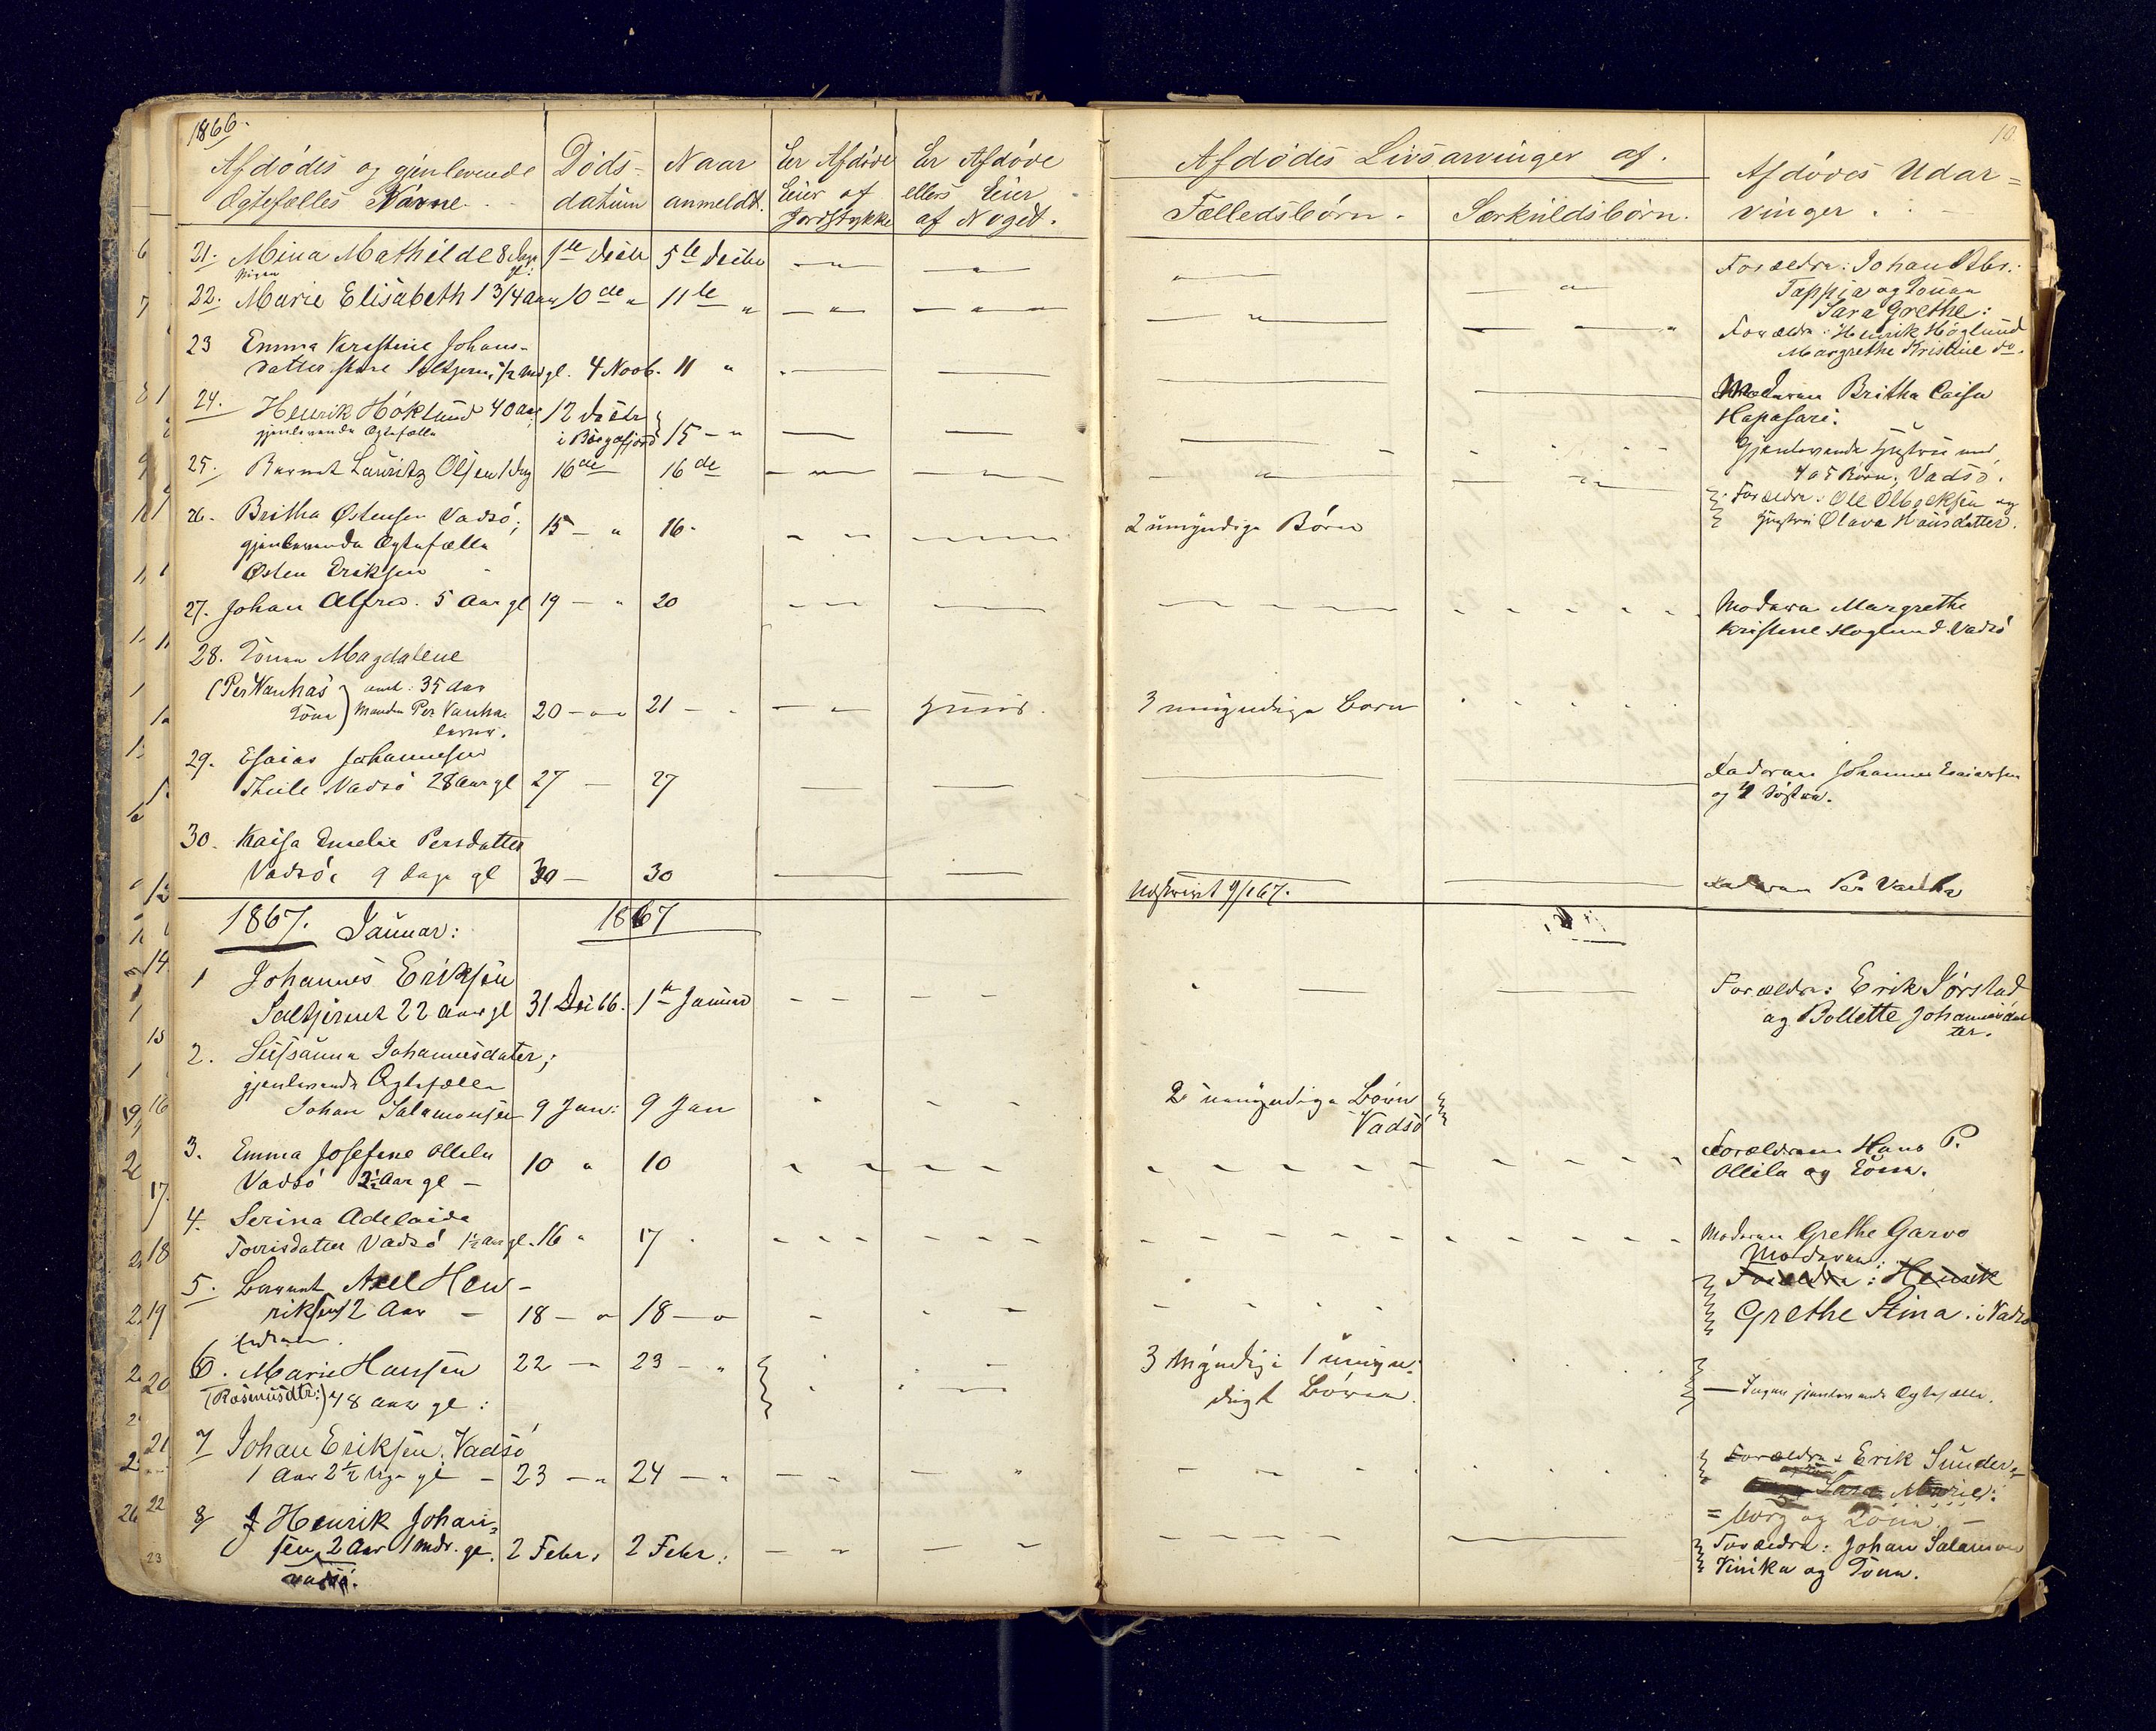 1866.
Afdödes og gjenlevende
Ægtefælles Navne.
Döds-
datum
Naar
anmeldt.
Er Afdöde
Eier af
Jordstykke
Er Afdöde
ellers Eier
af Noget.
Afdödes Livsarvinger af.
Fælledsbörn.
Særkuldsbörn.
Afdödes Udar=
vinger.
10
21. Mina Mathilde 8 Dage gl: 1ste Decbr 5te Decbr
Forældre: Johan
Pigen
22. Marie Elisabeth 1 3/4 Aar 10de " 11te "
Tappia og Konen
Sara Grethe:
Forældre: Henrik Höglund
Margrethe Kristine do.
23 Emma Kirstine Johans-
datter 1/2 Md gl. 4 Novb. 11 "
Moderen Britha Caisa
Hapasari.
24. Henrik Höklund 40 Aar 12 Decbr
gjenlevende Ægtefælle i Bögøfjord 15 - "
Gjenlevende Hustru med
4 a 5 Börn, Vadsö.
25. Barnet Lauritz Olsen 1 Dag 16de 16de
Forældre: Ole og
Hustru Olava Hansdatter.
26. Britha Østensen Vadsö; 15 - " 16.
2 umyndige Börn
gjenlevende Ægtefælle
Østen Eriksen
27. Johan Alfred. 5 Aar gl 19 - " 20
Moderen Margrethe
Kristine Höglund Vadsö
28. Konen Magdalene
(Per Vanhas Kone) omt: 35 Aar
Manden Per Vanha
lever. 20 - " 21 -
3 umyndige Börn
29. Esaias Johannesen
Thiile Vadsö 28 Aar gl 27 - 27
Faderen Johannes Esaiassen
og 4 Söstre.
30. Kaisa Emelie Persdatter
Vadsö. 9 Dage gl 30 - 30
Udskrevet 9/1 67.
Faderen Per Vanha
1867. Januar: 1867
1 Johannes Eriksen
Saltjernet 22 Aar gl 31 Dec 66. 1ste Januar
Forældre: Erik Sörstad
og Bollette Johannesdat
ter.
2. Susanna Johannesdater;
gjenlevende Ægtefælle
Johan Salamonsen 9 Jan: 9 Jan
2 umyndige Börn
Vadsö
3. Emma Josefine Ollila
Vadsö 2½ Aar gl - 10 " 10
Forældrene Hans P.
Ollila og Kone.
4. Serina Adelaide
Torrisdatter Vadsö 1½ Aar gl. 16 " 17
Moderen Grethe Garvo
5. Barnet Axel Hen-
riksen 2 Aar - 18 - " 18 - "
Moderen:
Forældre: Henrik
Grethe Stina. i Vadsö
6. Marie Hansen 22 - " 23 - "
(Rasmusdtr:) 48 Aar gl:
3 Myndige 1 umyn-
digt Börn.
Ingen gjenlevende Ægtefælle.
7 Johan Eriksen. Vadsö
1 Aar 2½ Uge gl - 23 - " 24 - "
Forældre: Erik Sunder=
Sara Marie:
=borg og Kone. -
8 Henrik Johan=
sen, 2 Aar 1 Mdr. gl. 2 Febr. 2 Febr:
Vadsö.
Forældre: Johan Salamon
Vinika og Kone.